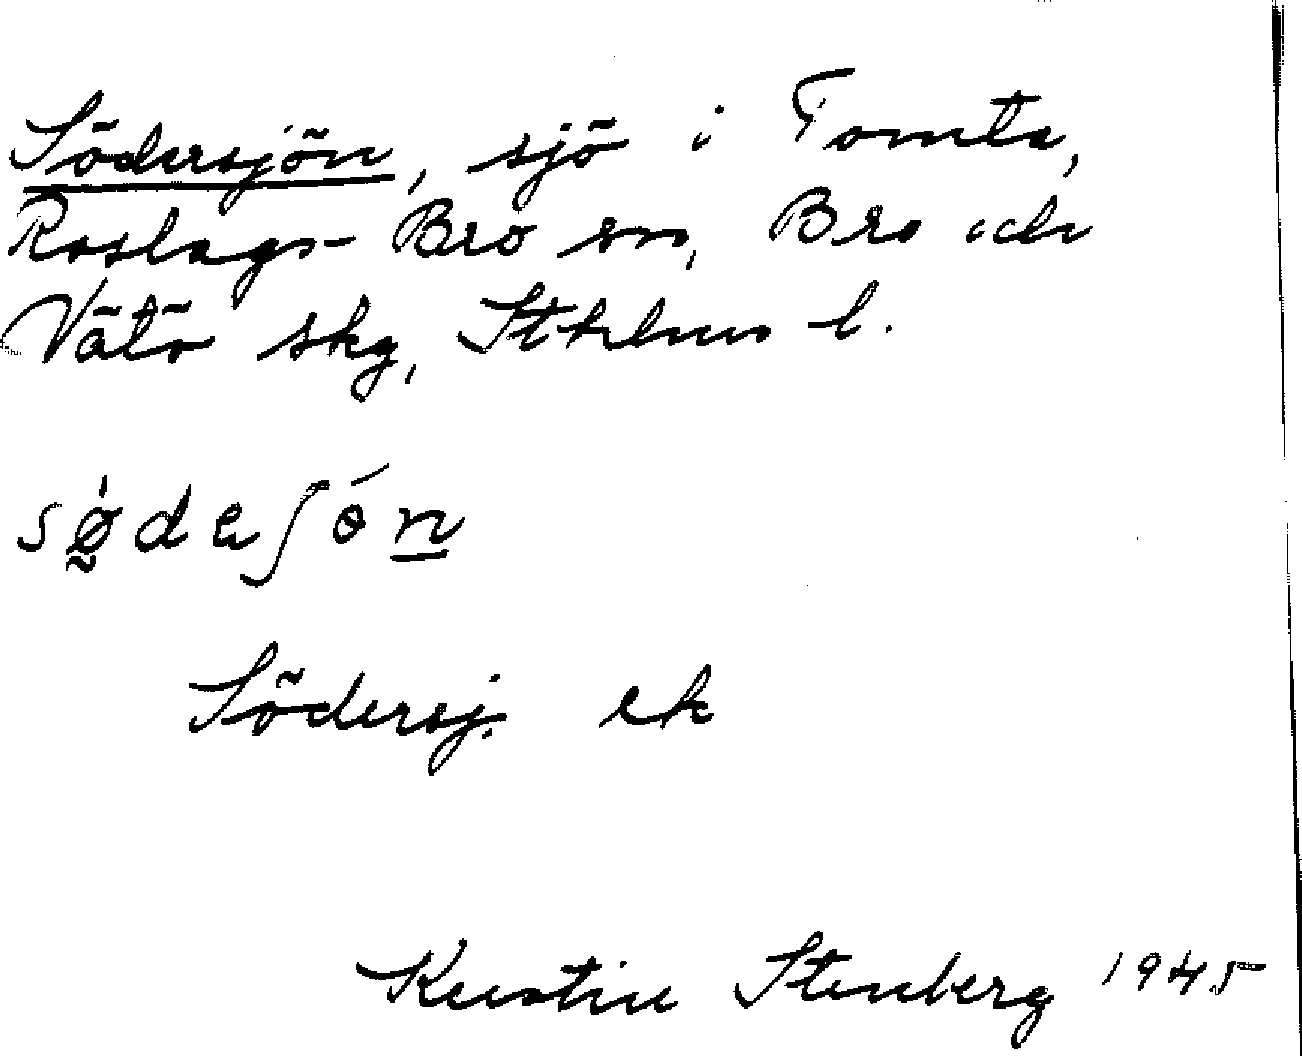 Södersjön, sjö i Tomta,
Roslags-Bro sn, Bro och
Vätö skg, Sthlms l.
sø̀deʃón
Södersj. ek
Kerstin Stenberg 1945